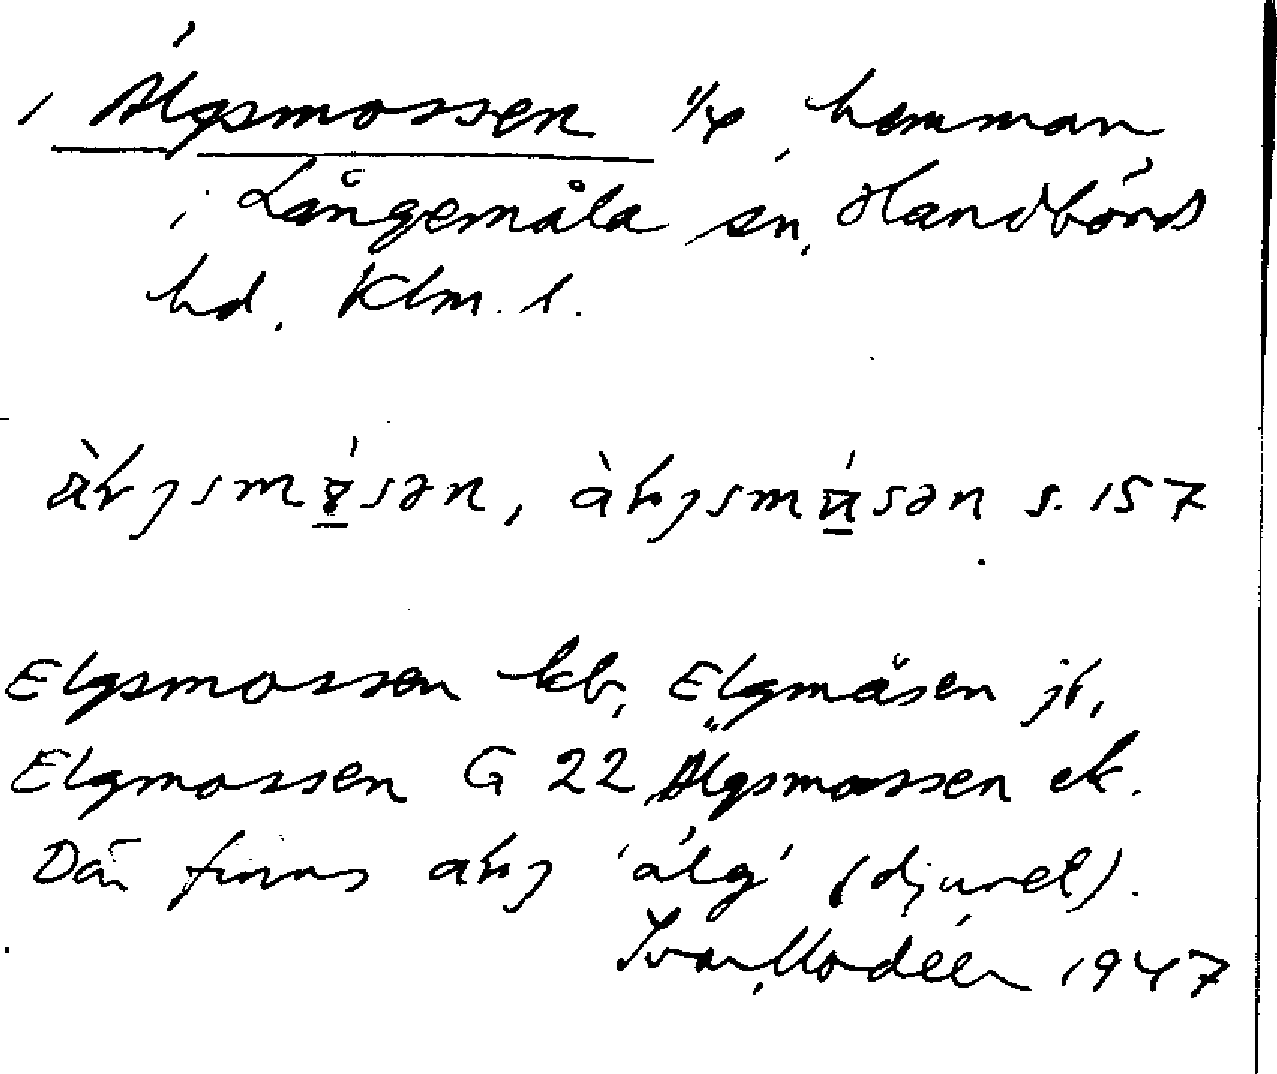 Älgsmossen 1/4 hemman
i Långemåla sn, Handbörds
hd. Klm. l.
s. 157
Elgsmossen kb, Elgmåsen jb,
Elgmossen G 22 Älgsmossen ek.
Där finns 'älg' (djuret).
Ivar Modéer 1947